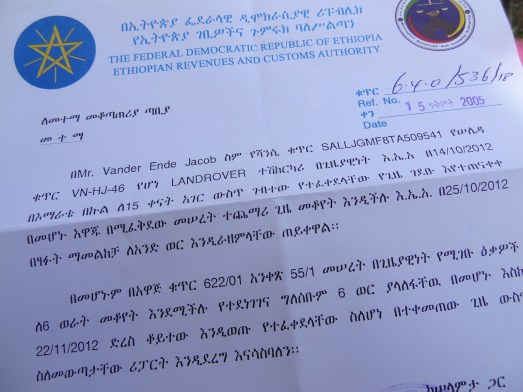 በኢትዮጵያ ፌደራላዊ ዲሞክራሲያዊ ሪፐብሊክ
የኢትዮጵያ ገቢዎችና ጉምሩክ ባለሥልጣን
THE FEDERAL DEMOCRATIC REPUBLIC OF ETHIOPIA
ETHIOPIAN REVENUES AND CUSTOMS AUTHORITY
ቁጥር 6-4-0/536/18
Ref. No.
ቀን 15 2005
Date
ለመተማ መቆጣጠሪያ ጣቢያ
መ ተ ማ
በMr. Vander Ende Jacob ስም የሻንሲ ቁጥር SALLJGMF8TA509541 የሠሌዳ
ቁጥር VN-HJ-46 የሆነ LANDROVER ተሽከርካሪ በጊዜያዊነት እ.ኤ.አ በ14/10/2012
በኦማራቴ በኩል ለ15 ቀናት አገር ውስጥ ገብተው የተፈቀደላቸው የጊዜ ገደቡ እየተጠናቀቀ
በመሆኑ አዋጁ በሚፈቅደው መሠረት ተጨማሪ ጊዜ መቆየት እንዲችሉ እ.ኤ.አ. በ25/10/2012
በፃፉት ማመልከቻ ለአንድ ወር እንዲራዘምላቸው ጠይቀዋል፡፡
በመሆኑም በአዋጅ ቁጥር 622/01 አንቀጽ 55/1 መሠረት በጊዜያዊነት የሚገቡ ዕቃዎች
ለ6 ወራት መቆየት እንደሚችሉ የተደነገገና ግለሰቡም 6 ወር ያላለፋቸዉ በመሆኑ እስከ
22/11/2012 ድረስ ቆይተው እንዲወጡ የተፈቀደላቸው ስለሆነ በተቀመጠው ጊዜ ውስጥ
ስለመውጣታቸው ሪፓርት እንዲደረግ እናሳስባለን፡፡
ከሠላምታ ጋር